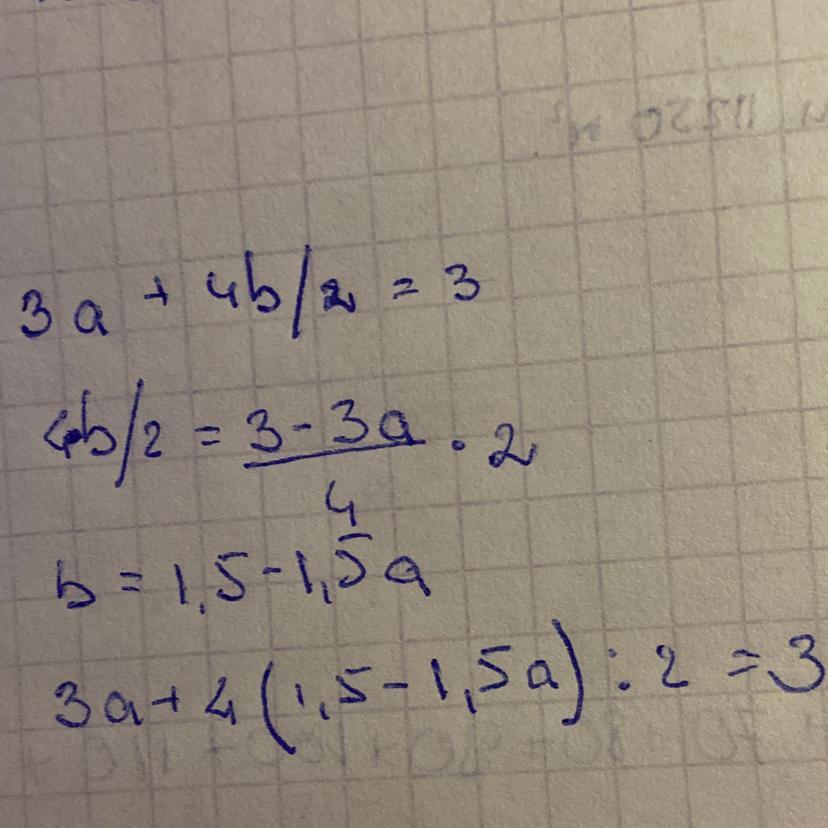 3a + 4b/2 = 3
4b/2 = (3 - 3a)/4 · 2
b = 1,5 - 1,5a
3a + 4(1,5 - 1,5a) : 2 = 3